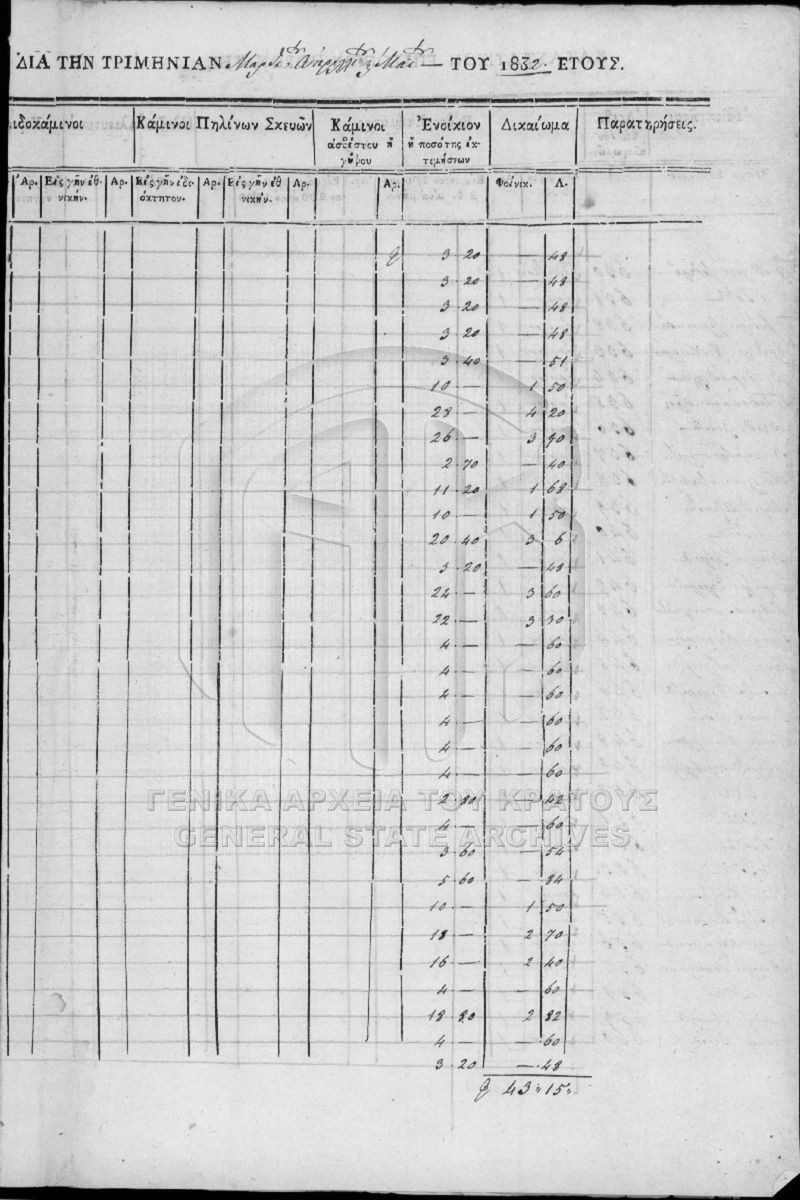 ΔΙΑ ΤΗΝ ΤΡΙΜΗΝΙΑΝ ΤΟΥ 1832. ΕΤΟΥΣ.
ιδοκάμινοι Κάμινοι Πηλίνων Σκευῶν Κάμινοι ἀσβέστου ἢ γύψου Ἐνοίκιον ἢ ποσότης ἐκτιμήσεων Δικαίωμα Παρατηρήσεις.
Ἀρ. Εἰς γῆν ἐθνικήν. Αρ. Εἰς γῆν ἰδιόκτητον. Αρ. Εἰς γῆν ἐθνικήν. Αρ. Αρ. Φοίνικ. Λ.
3 20 — 48
3 20 — 48
3 20 — 48
3 20 — 48
3 40 — 51
10 — 1 50
28 — 4 20
26 — 3 90
2 70 — 40
11 20 1 68
10 — 1 50
20 40 3 6
3 20 — 48
24 — 3 60
22 — 3 30
4 — — 60
4 — — 60
4 — — 60
4 — — 60
4 — — 60
4 — — 60
2 80 — 42
4 — — 60
3 60 — 54
5 60 — 84
10 — 1 50
18 — 2 70
16 — 2 40
4 — — 60
18 80 2 82
4 — — 60
3 20 — 48
43 15
ΓΕΝΙΚΑ ΑΡΧΕΙΑ ΤΟΥ ΚΡΑΤΟΥΣ
GENERAL STATE ARCHIVES